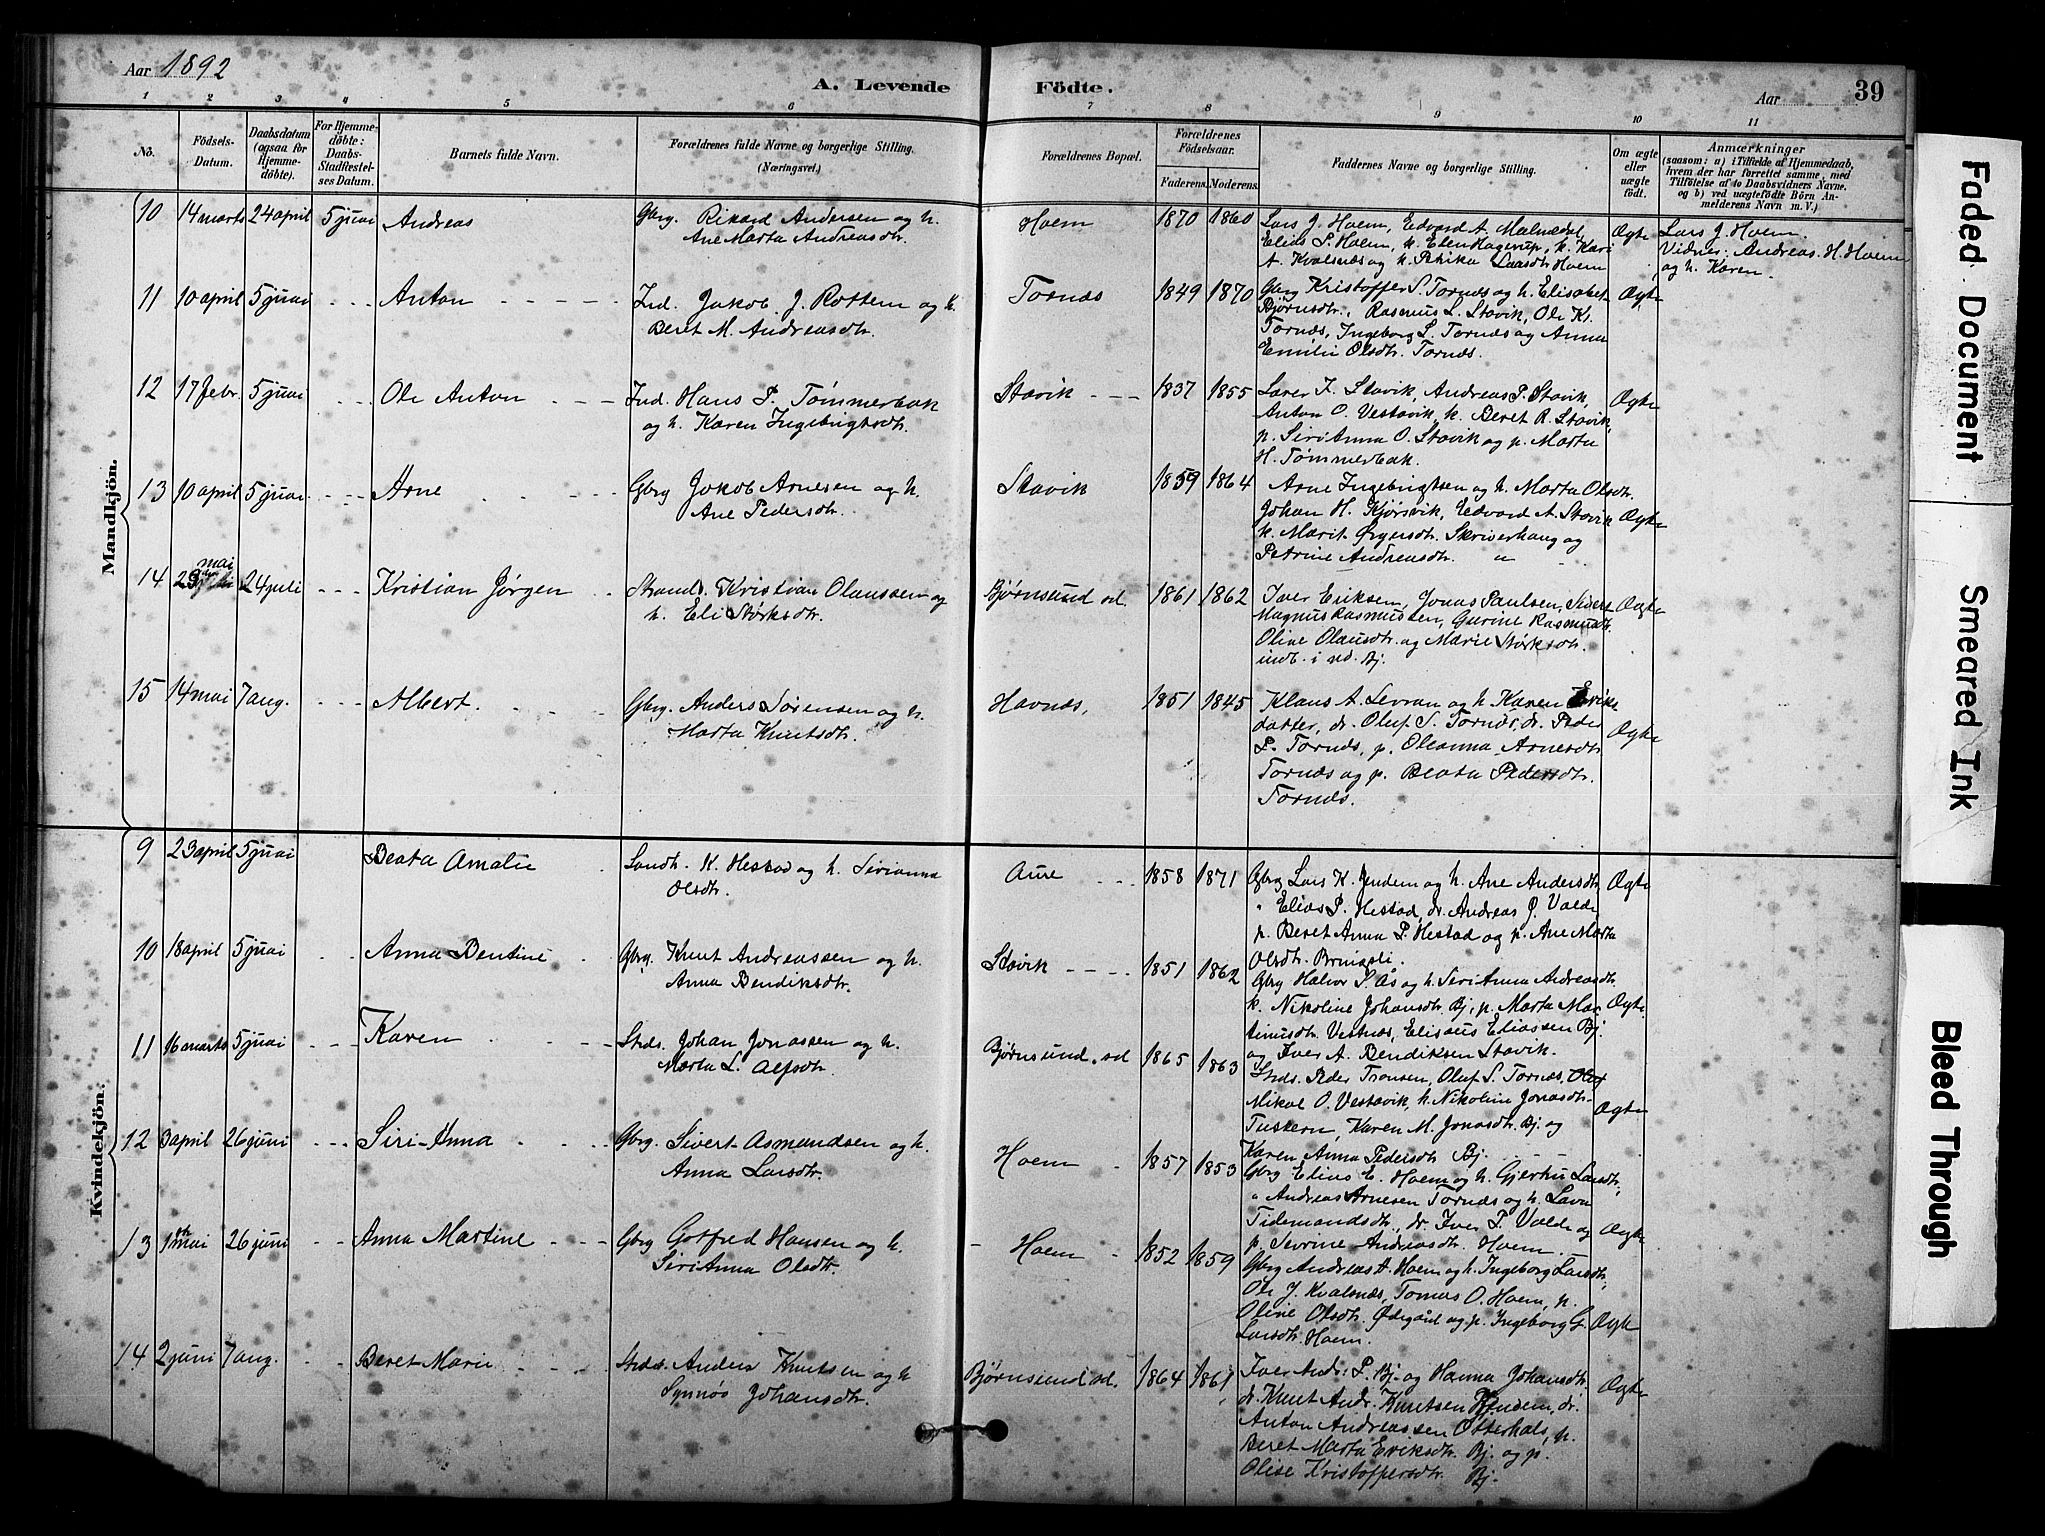 Aar 1892
A. Levende Födte.
Aar
39
1 2 3 4 5 6 7 8 9 10 11
No.
Födsels-
Datum.
Daabsdatum
(ogsaa for
Hjemme-
døbte).
For Hjemme-
døbte:
Daabs-
Stadfæstel-
ses Datum.
Barnets fulde Navn.
Forældrenes fulde Navne og borgerlige Stilling.
(Næringsvei.)
Forældrenes Bopæl.
Forældrenes
Födselsaar.
Faderens. Moderens.
Faddernes Navne og borgerlige Stilling.
Om ægte
eller
uægte
födt.
Anmærkninger
(saasom: a) i Tilfælde af Hjemmedaab,
hvem der har forrettet samme, med
Tilföielse af to Daabsvidners Navne,
og b) ved uægtefödte Börn An-
melderens Navn m. V.)
Mandkjön.
10 14 marts 24 april 5 juni Andreas
Gbrg. Rikard Andersen og h.
Ane Marta Andreasdtr.
Hoem 1870 1860
Lars J. Hoem, Edvard A. Malmedal,
Elias P. Hoem, k. Elen Hagerup, k. Kari
A. Kvalsnæs og h. Petrika Larsdtr Hoem
Ægte
Lars J. Hoem.
Vidner: Andreas H. Hoem
og h. Karen.
11 10 april 5 juni Anton
Ind. Jakob J. Rottem og h.
Beret M. Andreasdtr.
Tornæs 1849 1870
Gbrg Kristoffer S. Tornæs og h. Elisabet
Bjørnsdtr., Rasmus L. Stavik, Ole Kr.
Tornæs, Ingeborg L. Tornæs og Anna
Emilie Olsdtr. Tornæs.
Ægte
12 17 febr. 5 juni Ole Anton
Ind. Hans P. Tømmerbak
og h. Karen Ingebrigtsdtr.
Stavik 1837 1855
Lærer K. Stavik, Andreas P. Stavik,
Anton O. Vestavik, k. Beret R. Stavik,
p. Siri Anna O. Stavik og p. Marta
H. Tømmerbak.
Ægte
13 10 april 5 juni Arne
Gbrg Jakob Arnesen og h.
Ane Pedersdtr.
Stavik 1859 1864
Arne Ingebrigtsen og h. Marta Olsdtr.
Johan H. Kjørsvik, Edvard A. Stavik
k. Marit Ørgersdtr. Skriverhaug og
Petrine Andreasdtr. "
Ægte
14 29 mai 24 juli Kristian Jørgen
Strands. Kristian Olaussen og
h. Eli Størksdtr.
Bjørnsund nd. 1861 1862
Iver Eriksen, Jonas Paulsen, Sivert
Magnus Rasmussen, Gurine Rasmusdtr.
Oline Olausdtr. og Marie Størksdtr.
indb. i nd. Bj.
Ægte
15 14 mai 7 aug. Albert
Gbrg. Anders Sørensen og h.
Marta Knutsdtr.
Havnæs, 1851 1845
Klaus A. Sevran og h. Karen Eriks
datter, dr. Oluf S. Tornæs, dr. Peder
P. Tornæs, p. Oleanna Arnesdtr
Tornæs og p. Beata Pedersdtr.
Tornæs.
Ægte
Kvindekjön.
9 23 april 5 juni Beata Amalie
Landh. K. Hestad og h. Sirianna
Olsdtr.
Aure 1858 1871
Gbrg Lars K. Jendem og h. Ane Andersdtr,
" Elias P. Hestad, dr. Andreas J. Valde,
p. Beret Anna P. Hestad og p. Ane Marta
Olsdtr. Bruaseli.
Ægte
10 18 april 5 juni Anna Bentine
Gbrg. Knut Andreassen og h.
Anna Bendiksdtr.
Stavik 1851 1862
Gbrg Halvor S. Ås og h. Siri Anna Andreasdtr
k. Nikoline Johansdtr. Bj., p. Marta Mar
tinusdtr. Vestnæs, Eliseus Eliassen Bj.
og Iver A. Bendiksen Stavik.
Ægte
11 16 marts 5 juni Karen
Strds. Johan Jonassen og h.
Marta L. Alfsdtr.
Bjørnsund nd 1865 1863
Strds. Peder Tronsen, Oluf S. Tornæs,
Mikal O. Vestavik, h. Nikoline Jonasdtr.
Tuskern, Karen M. Jonasdtr. Bj. og
Karen Anna Pedersdtr Bj.
Ægte
12 3 april 26 juni Siri-Anna
Gbrg. Sivert Asmundsen og h.
Anna Larsdtr.
Hoem 1857 1853
Gbrg Elias E. Hoem og h. Gjertru Larsdtr.,
" Andreas Arnesen Tornæs og h. Lava
Tidemandsdtr., dr. Iver P. Valde og
p. Sevrine Andreasdtr. Hoem.
Ægte
13 1ste mai 26 juni Anna Martine
Gbrg Gotfred Hansen og h.
Siri Anna Olsdtr.
Hoem 1852 1859
Gbrg Andreas A. Hoem og h. Ingeborg Larsdtr,
Ole J. Kvalsnæs, Tomas O. Hoem, p.
Oline Olsdtr. Ødegård og p. Ingeborg G.
Larsdtr. Hoem.
Ægte
14 2 juni 7 aug. Beret Marie
Strds. Anders Knutsen og h
Synnøv Johansdtr.
Bjørnsund nd. 1864 1861
Iver Andr. P. Bj. og Hanna Johansdtr.
dr. Knut Andr. Knutsen Jendem, dr.
Anton Andreassen Otterhals, p.
Beret Marta Eriksdtr. Bj. og p.
Olise Kristoffersdtr. Bj.
Ægte
Faded Document
Smeared Ink
Bleed Through